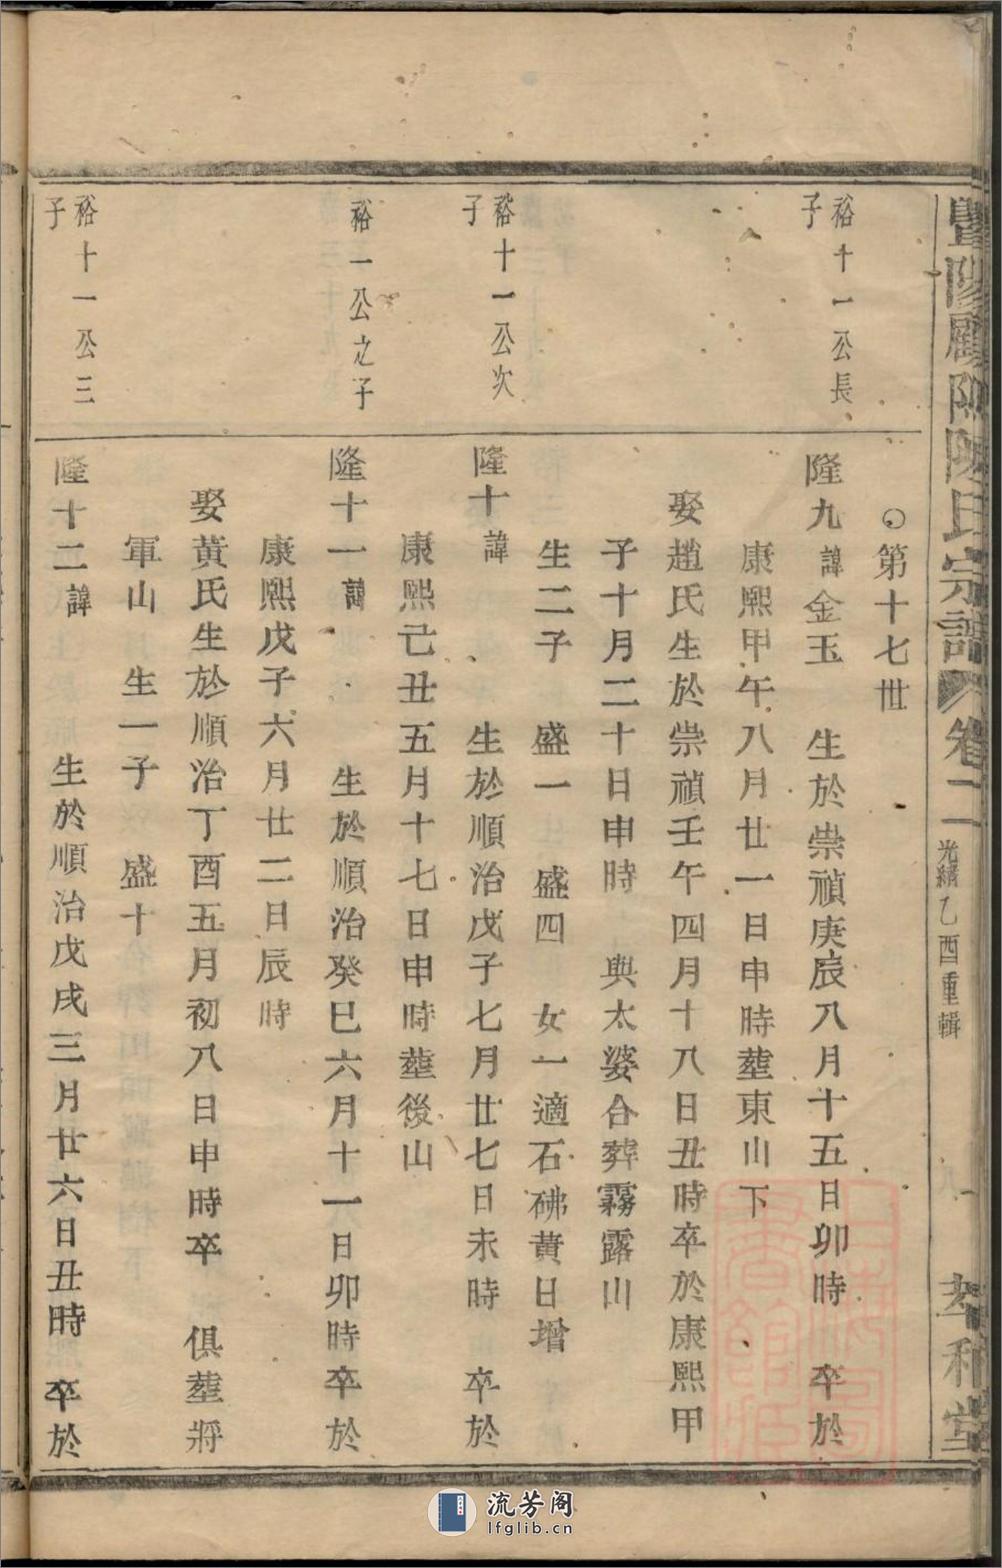 暨陽顧陶陳氏宗譜 卷二 光緒乙酉重輯 八 孝和堂
第十七世
裕十一公長
子
隆九諱金玉 生於崇禎庚辰八月十五日卯時 卒於
康熙甲午八月廿一日申時塟東山下
娶趙氏生於崇禎壬午四月十八日丑時卒於康熙甲
子十月二十日申時 與太婆合葬霧露山
生二子 盛一 盛四 女一適石砩黄日增
裕十一公次
子
隆十諱 生於順治戊子七月廿七日未時 卒於
康熙己丑五月十七日申時塟後山
裕一公之子
隆十一諱 生於順治癸巳六月十一日卯時卒於
康熙戊子六月廿二日辰時
娶黃氏生於順治丁酉五月初八日申時卒 俱塟將
軍山 生一子 盛十
裕十一公三
子
隆十二諱 生於順治戊戌三月廿六日丑時 卒於
流芳阁
lfglib.cn